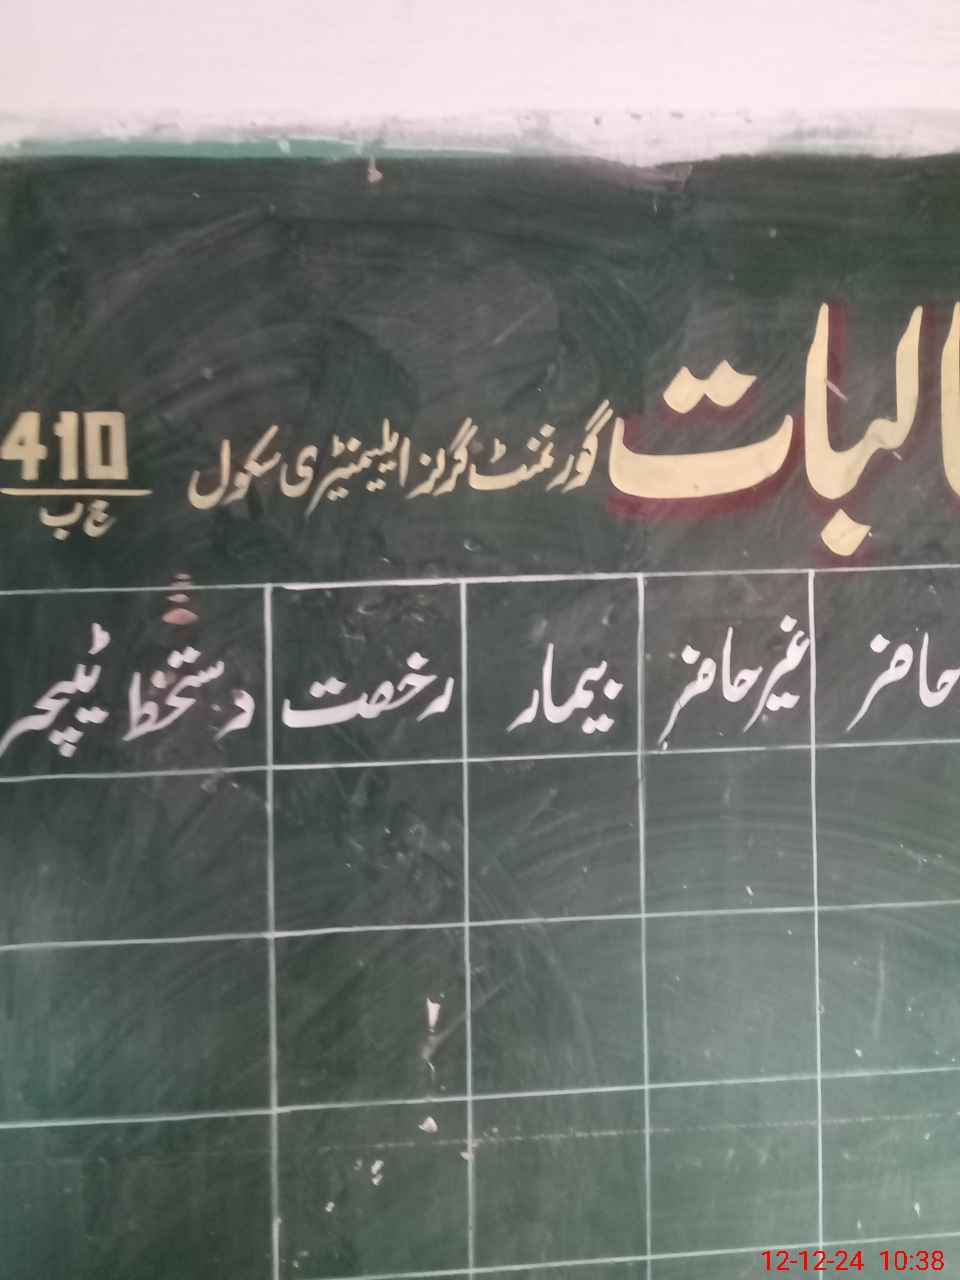 البات گورنمنٹ گرلز ایلیمنٹری سکول 410
ع ب
حاضر غیر حاضر بیمار رخصت دستخط ٹیچر
12-12-24 10:38